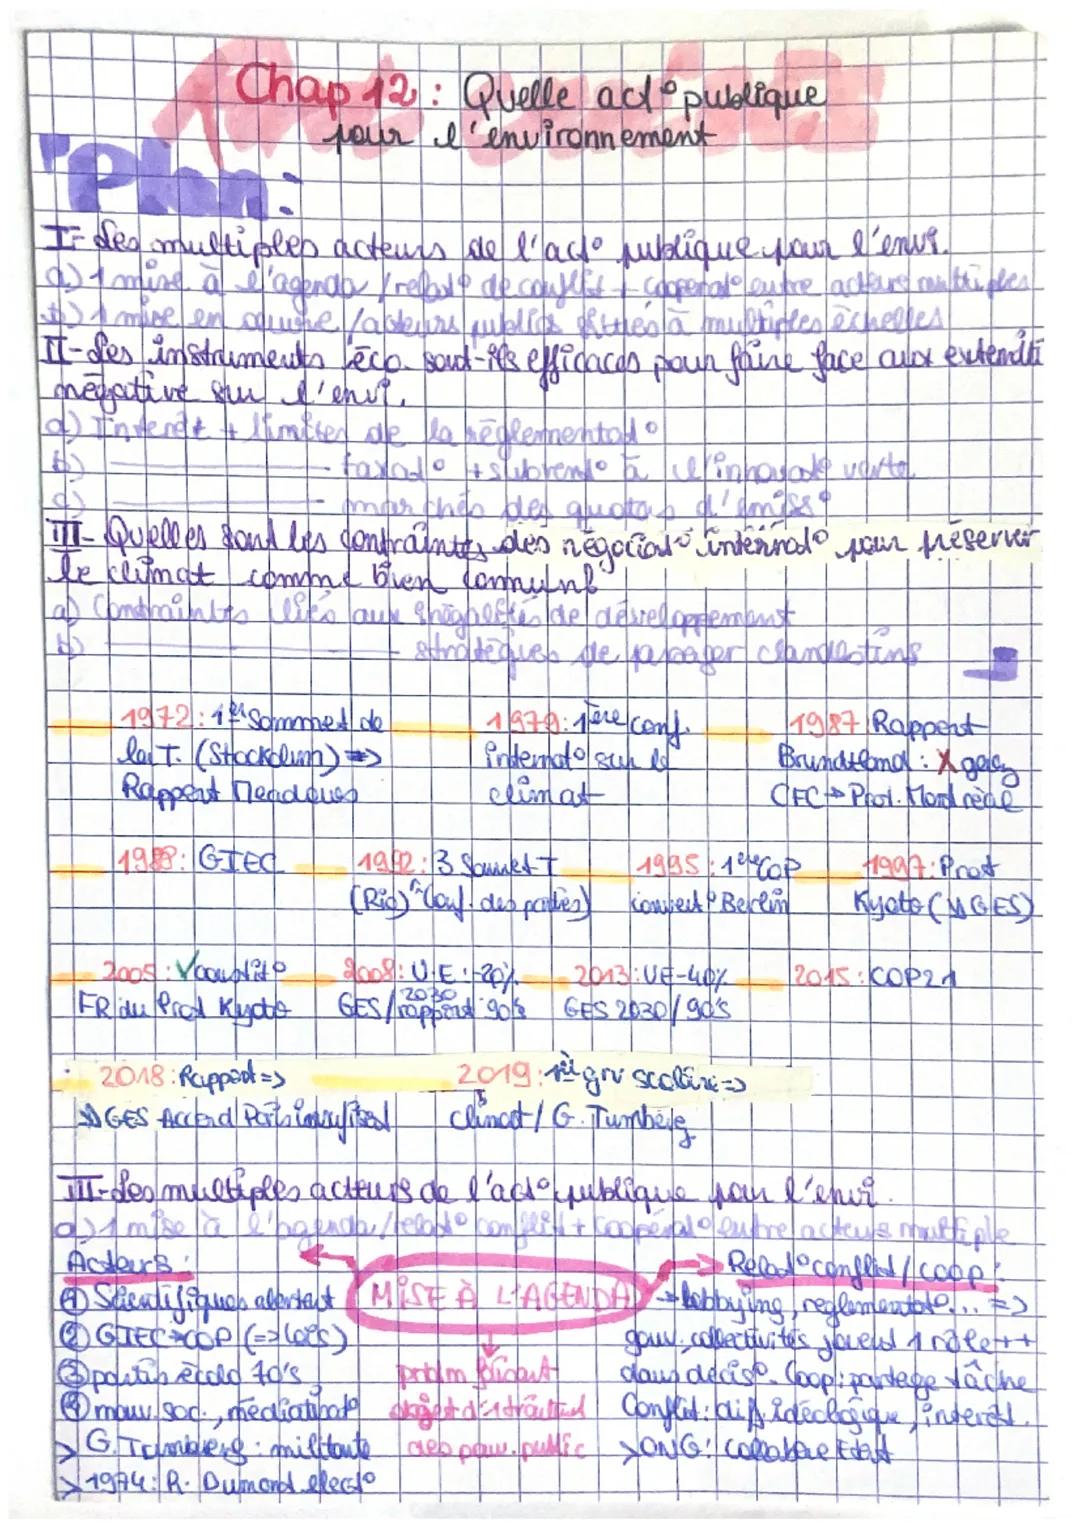 Chap 12 : Quelle act° publique
pour l'environnement
Plan:
I- Les multiples acteurs de l'act° publique pour l'envi.
a) 1 mise à l'agenda / relat° de conflit + coopérat° entre acteurs multiples
b) 1 mise en œuvre / acteurs publics situés à multiples échelles
II- Les instruments éco. sont-ils efficaces pour faire face aux
négative sur l'envi.
a) Intérêt + limites de la réglementat°
b) ———— taxat° + subvent° à l'innovat° verte
c) ———— marchés des quotas d'émiss°
III- Quelles sont les contraintes des négociat° internat° pour préserver
le climat comme bien commun
a) Contraintes liés aux inégalités de développement
b) ———— stratégies de passager clandestins
1972: 1er Sommet de 1979: 1ère conf. 1987 Rapport
la T. (Stockolm) => internat° sur le Brundtland : X
Rapport Meadows climat CFC → Prot. Montréal
1988: GIEC 1992: 3 Sommet T 1995: 1ère COP 1997: Prot
(Rio) (conf. des parties) Berlin Kyoto (↘ GES)
2005: 2008: U.E: -20% 2013: UE-40% 2015: COP21
FR du Prot Kyoto GES/rapport 90's GES 2030/90's
2030
2018: Rapport => 2019: grv scolaire =>
↘ GES Accord Paris climat / G. Tumberg
III- Les multiples acteurs de l'act° publique pour l'envi.
a) 1 mise à l'agenda / relat° conflit + coopérat° entre acteurs multiple
Acteurs : MISE À L'AGENDA Relat° conflit / coop :
① Scientifiques alertent → lobbying, reglementat°... =>
② GIEC → COP (=> lois) gouv, collectivités jouent 1 rôle ++
③ partis écolo 70's problm dans décis°. Coop: partage tâche
④ mouv. soc., médiatisat° objet d' Conflit: diff idéologique, intérêt.
> G. Tumberg : militante des pouv. public > ONG: collabore Etat
> 1974: R. Dumond élect°